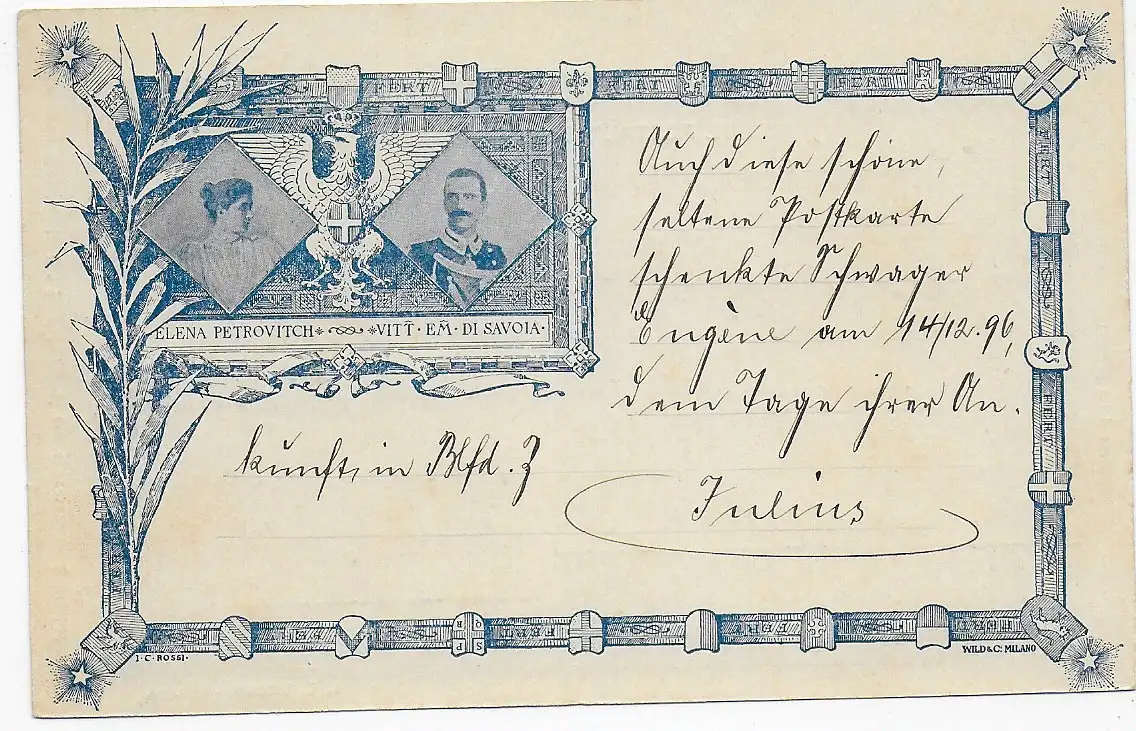 FERT FERT FERT
ELENA PETROVITCH VITT · EM · DI SAVOIA ·
Auch diese schöne,
seltene Postkarte
schenkte Schwager
Eugène am 14/12.96,
dem Tage ihrer An-
kunft, in Blfd.
Julius
FERT
FERT
S P Q R
FERT
FERT
I · C · ROSSI ·
WILD & C: MILANO